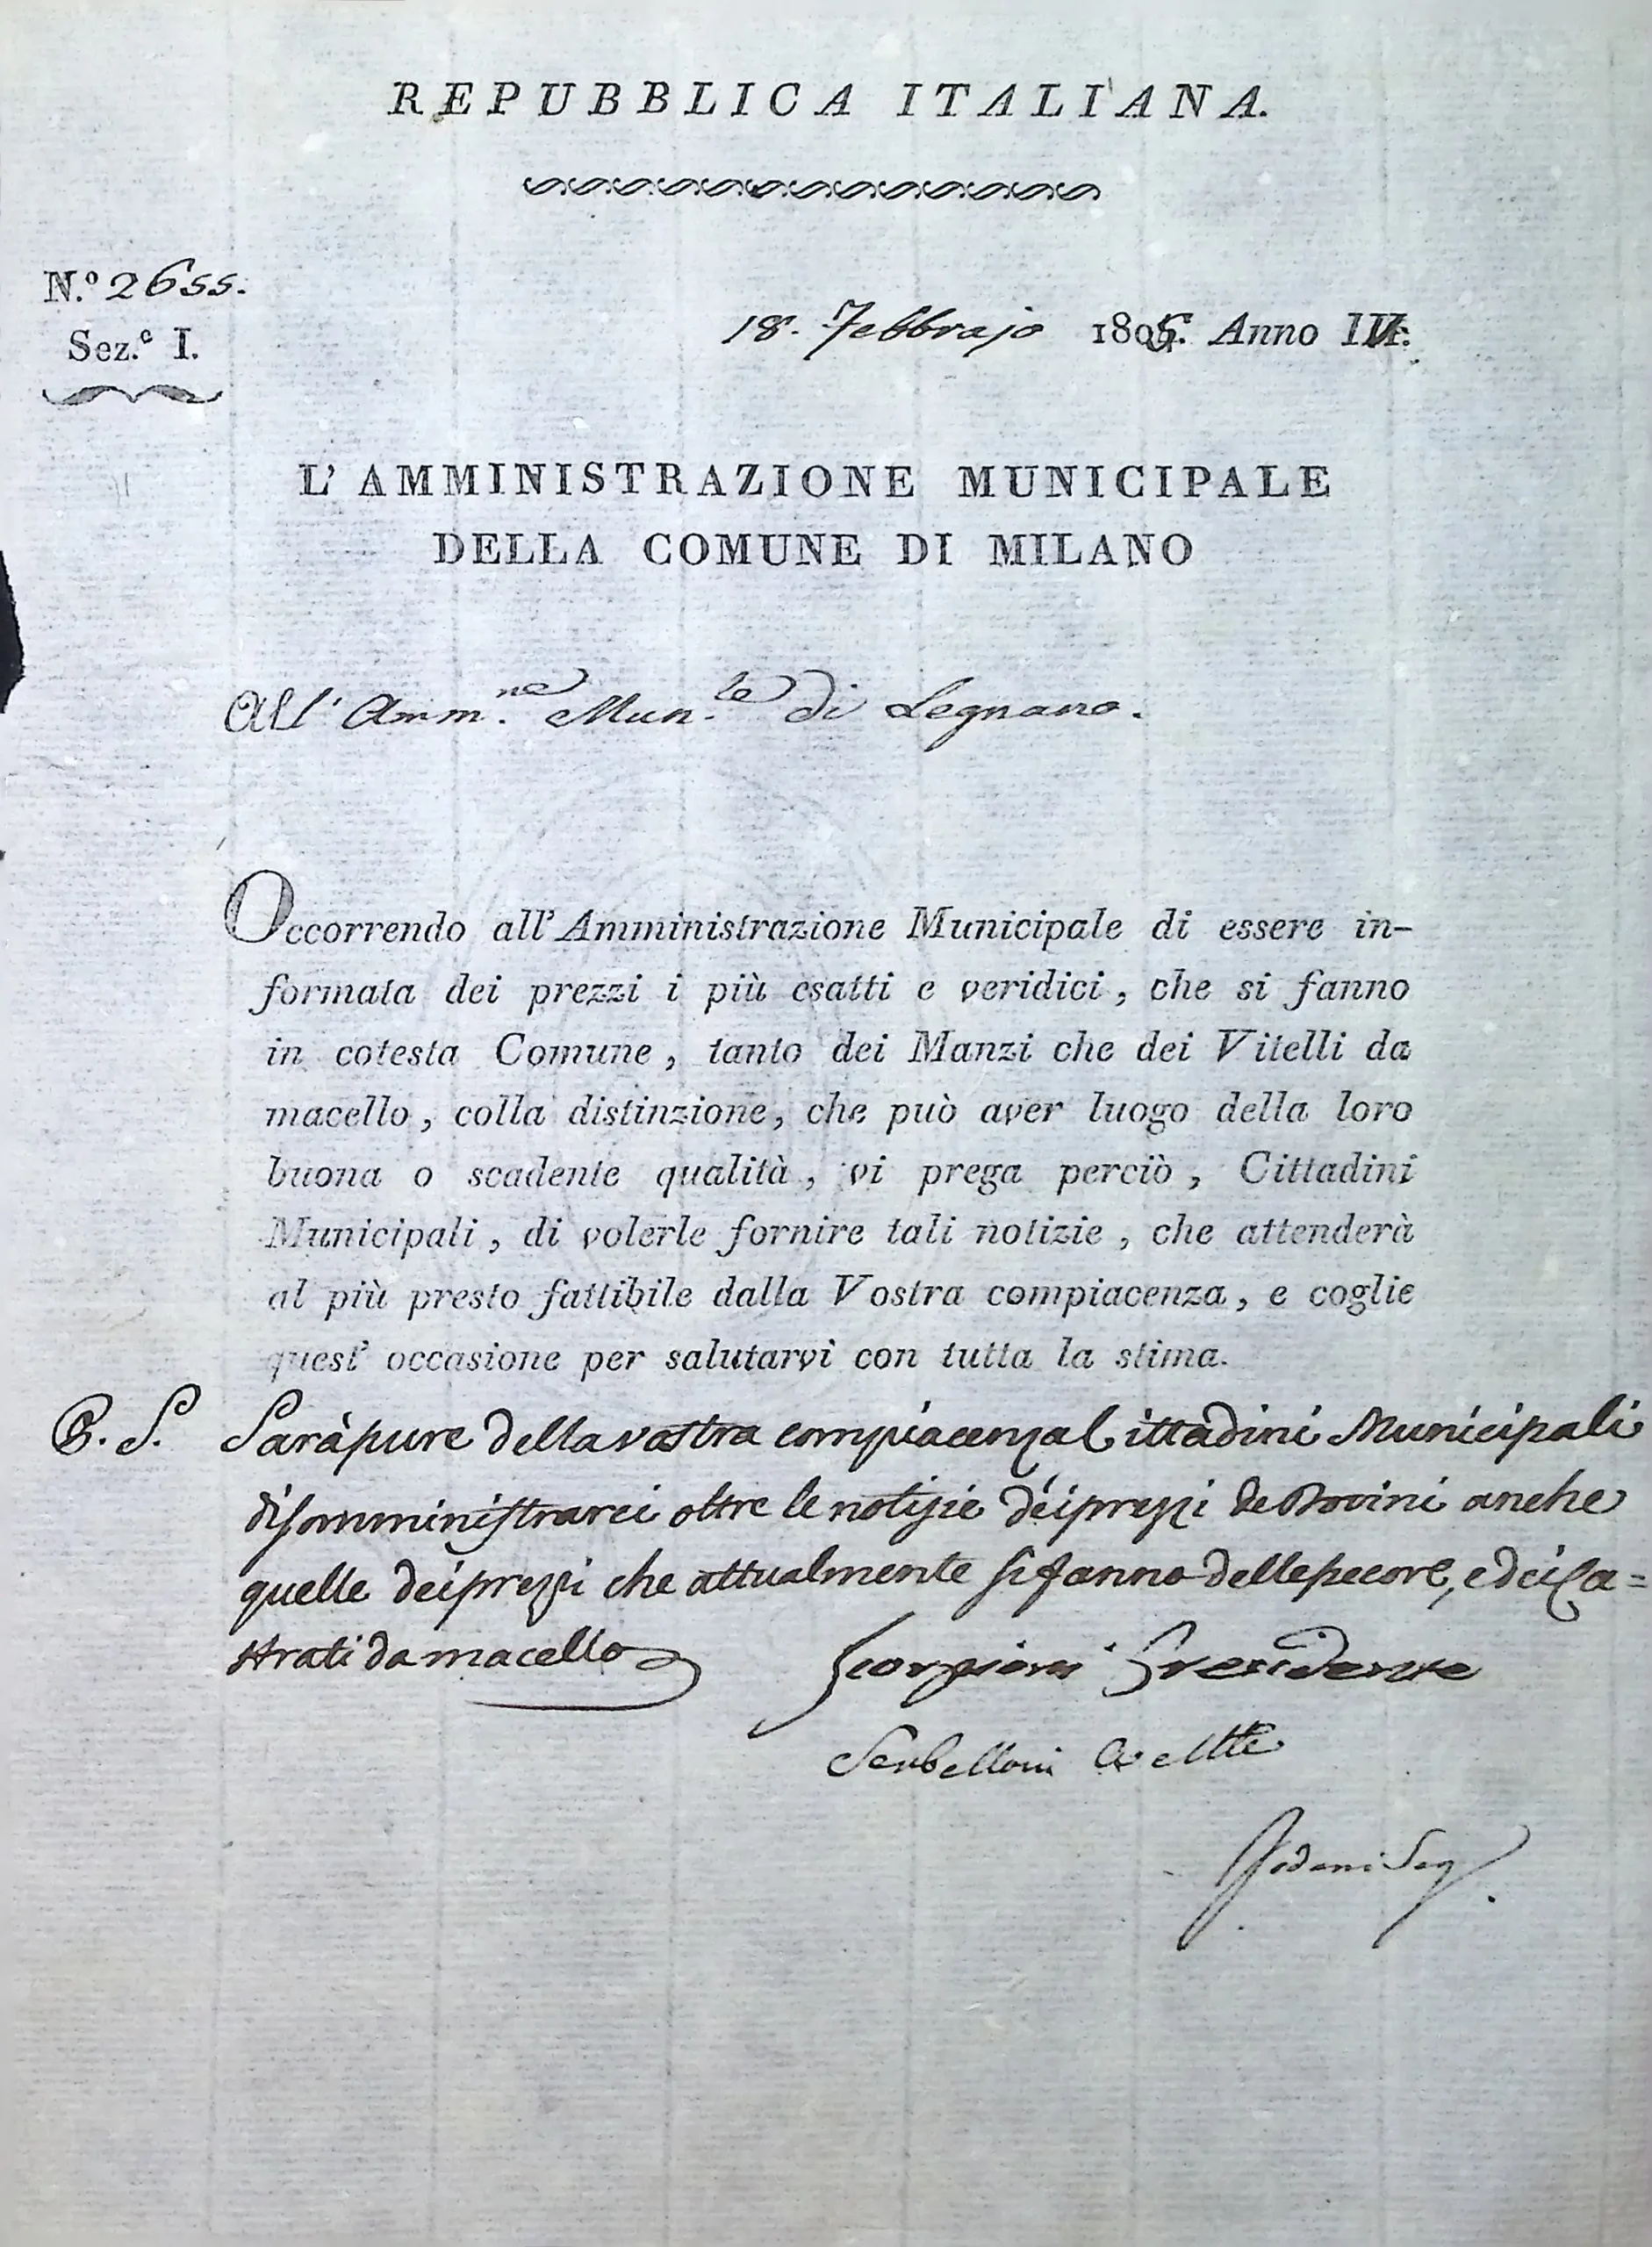 REPUBBLICA ITALIANA.
N.º 2655.
Sez.e I.
18. Febbrajo 1805. Anno IV.
L' AMMINISTRAZIONE MUNICIPALE
DELLA COMUNE DI MILANO
All' Amm.ne Mun.le di Legnano.
Occorrendo all' Amministrazione Municipale di essere in-
formata dei prezzi i più esatti e veridici, che si fanno
in cotesta Comune, tanto dei Manzi che dei Vitelli da
macello, colla distinzione, che può aver luogo della loro
buona o scadente qualità, vi prega perciò, Cittadini
Municipali, di volerle fornire tali notizie, che attenderà
al più presto fattibile dalla Vostra compiacenza, e coglie
quest' occasione per salutarvi con tutta la stima.
P. S. Sarà pure della vostra compiacenza Cittadini Municipali
di somministrarci oltre le notizie dei prezzi de Bovini anche
quelle dei prezzi che attualmente si fanno delle pecore, e dei Ca=
strati da macello
Scorpioni Presidente
Serbelloni
Seg.